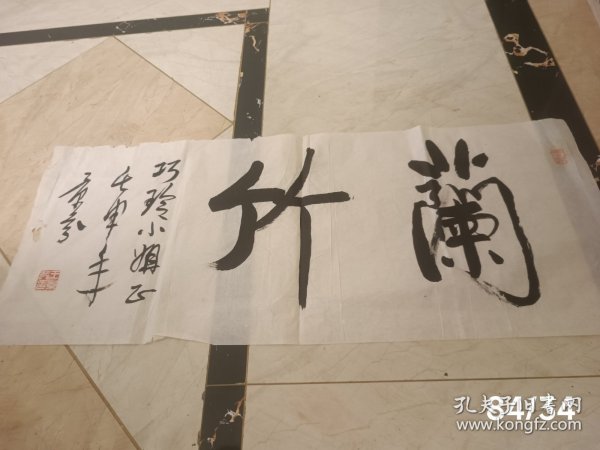 蘭竹
巧玲小姐正
壬申年
84/34
孔夫子旧书网
www.kongfz.com